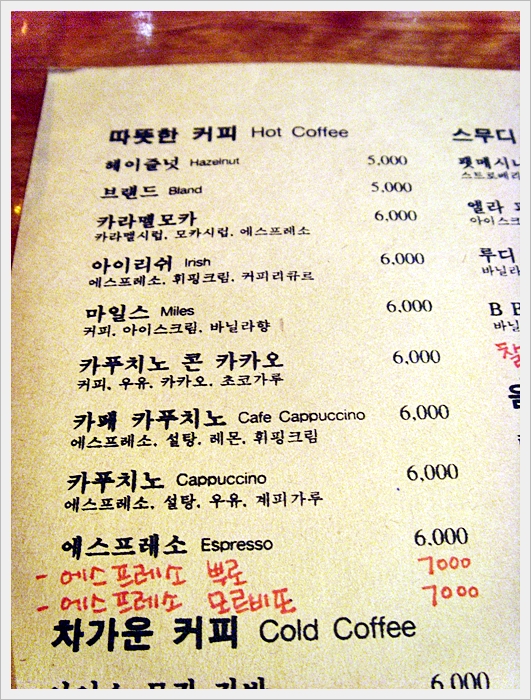 따뜻한 커피 Hot Coffee
헤이즐넛 Hazelnut 5,000
브랜드 Bland 5,000
카라멜모카 6,000
카라멜시럽, 모카시럽, 에스프레소
아이리쉬 Irish 6,000
에스프레소, 휘핑크림, 커피리큐르
마일스 Miles 6,000
커피, 아이스크림, 바닐라향
카푸치노 콘 카카오 6,000
커피, 우유, 카카오, 초코가루
카페 카푸치노 Cafe Cappuccino 6,000
에스프레소, 설탕, 레몬, 휘핑크림
카푸치노 Cappuccino 6,000
에스프레소, 설탕, 우유, 계피가루
에스프레소 Espresso 6,000
- 에스프레소 뽀로 7000
- 에스프레소 모르비도 7000
차가운 커피 Cold Coffee
6,000
스무디
엘라
루디